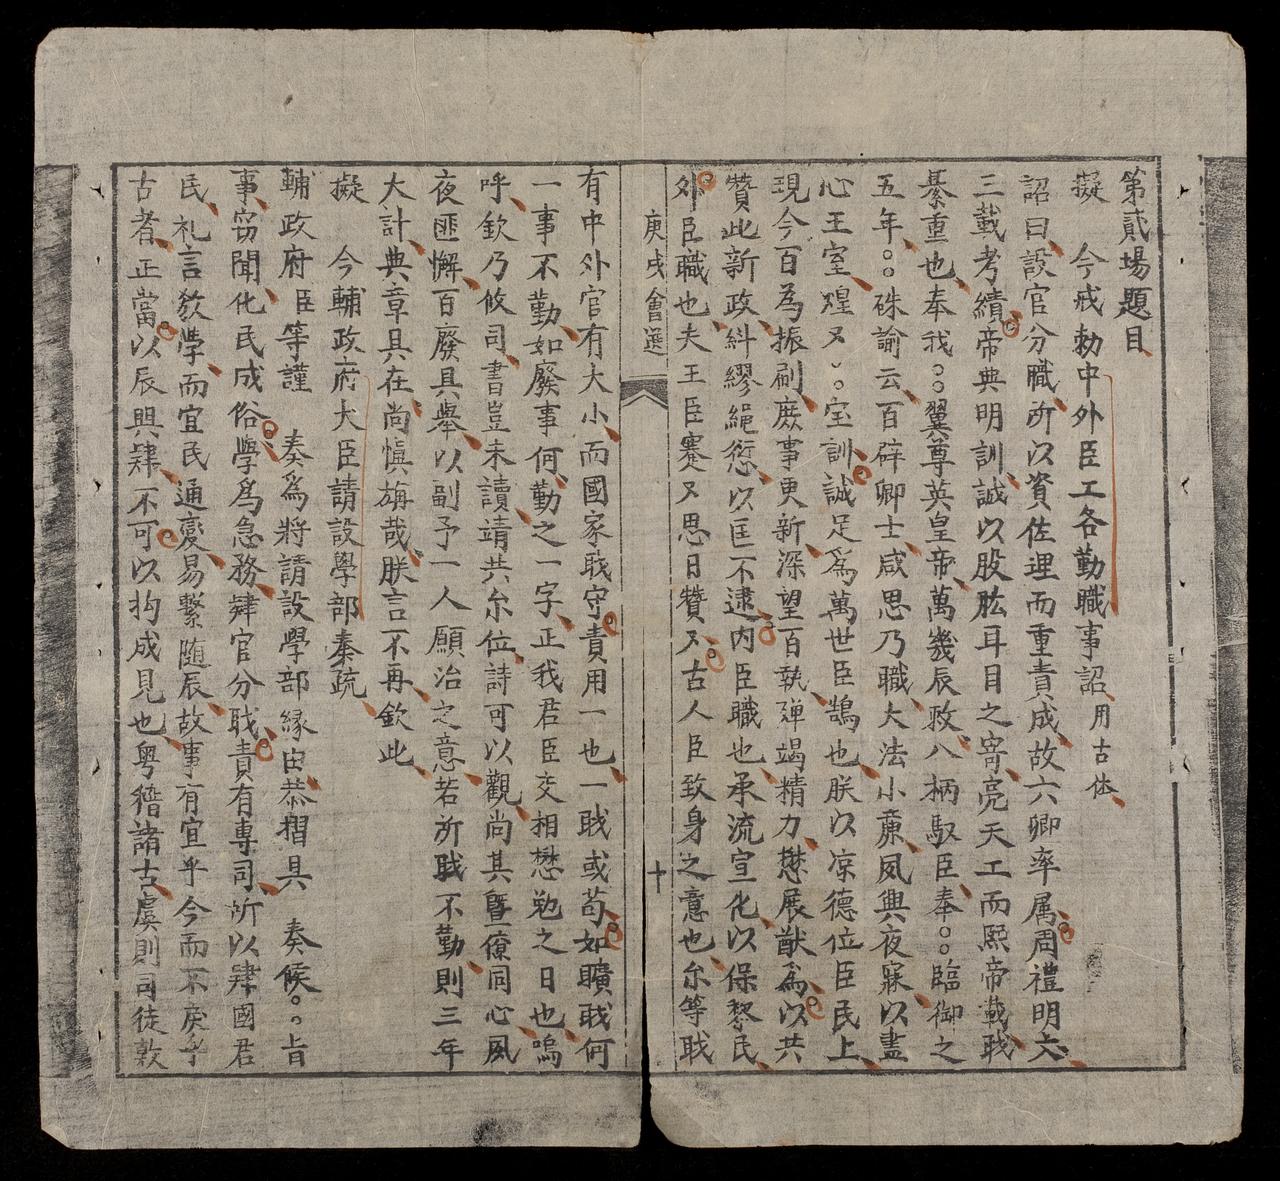 第貳場題目
擬　今戒勅中外臣工各勤職事詔用古体
詔曰設官分職所以資佐理而重責成故六卿率属周禮明六
三載考績帝典明訓誠以股肱耳目之寄亮天工而熙帝載戢
綦重也奉我○○翼尊英皇帝萬幾辰敕八柄馭臣奉○○臨御之
五年○○硃諭云百辟卿士咸思乃職大法小廉夙興夜寐以盡
心王室煌又○○宝訓誠足為萬世臣鵠也朕以凉德位臣民上
現今百為振刷庶事更新深望百執殫竭精力懋展猷為以共
賛此新政糾繆繩愆以匡不逮内臣職也承流宣化以保黎民
外臣職也夫王臣蹇又思日贊又古人臣致身之意也尔等戢
庚戌會選
十
有中外官有大小而國家戢守責用一也一戢或苟如曠戢何
一事不勤如廢事何勤之一字正我君臣交相懋勉之日也嗚
呼欽乃攸司書豈未讀靖共尔位詩可以觀尚其暨僚同心夙
夜匪懈百廢具舉以副予一人願治之意若所戢不勤則三年
大計典章具在尚慎旃哉朕言不再欽此
擬　今輔政府大臣請設學部奏疏
輔政府臣等謹　奏為將請設學部緣由恭摺具　奏候○○旨
事窃聞化民成俗學為急務肄官分戢責有專司所以肄國君
民礼言教學而宜民通變易繫随辰故事有宜乎今而不戾乎
古者正當以辰興肄不可以拘成見也粤稽諸古虞則司徒敦